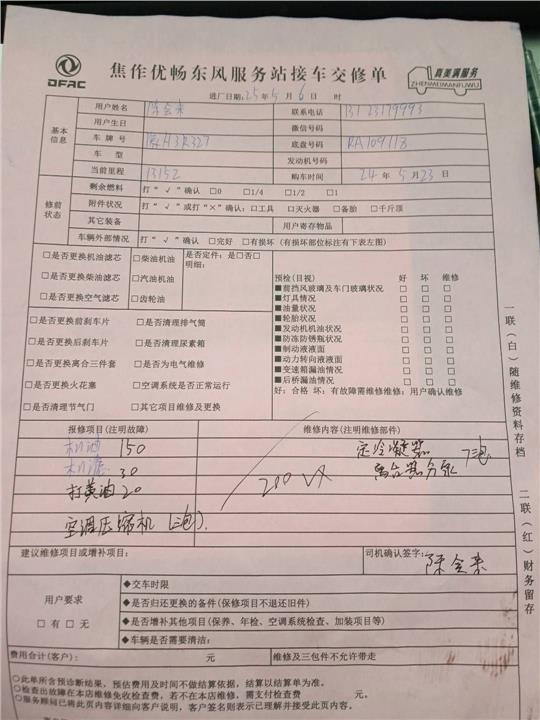 DFAC
焦作优畅东风服务站接车交修单
真美满服务
ZHENMEIMANFUWU
进厂日期:25年5月6日 时
基本信息
用户姓名 陈会来 联系电话
用户生日 微信号码
车牌号 底盘号码 RA109118
车型 发动机号码
当前里程 13152 购车时间 24年5月23日
修前状态
剩余燃料 打“√”确认 □0 □1/4 □1/2 □1
附件状况 打“√”或打“×”确认:□工具 □灭火器 □备胎 □千斤顶
其它装备 用户寄存物品
车辆外部情况 打“√”确认 □完好 □有损坏(有损坏部位标注有下表左图)
□是否更换机油滤芯 □柴油机油 是否定件:是□否□
明细:
□是否更换柴油滤芯 □汽油机油
□是否更换空气滤芯 □齿轮油
□是否更换前刹车片 □是否清理排气筒
□是否更换后刹车片 □是否清理尿素箱
□是否更换离合三件套 □是否为电气维修
□是否更换火花塞 □空调系统是否正常运行
□是否清理节气门 □其它项目维修及更换
预检(目视) 好 坏 维修
■前挡风玻璃及车门玻璃状况 □ □ □
■灯具情况 □ □ □
■油量状况 □ □ □
■轮胎状况 □ □ □
■发动机机油状况 □ □ □
■防冻防锈瓶状况 □ □ □
■制动液液面 □ □ □
■动力转向液液面 □ □ □
■变速箱漏油情况 □ □ □
■后桥漏油情况 □ □ □
好:合格 坏:有故障需维修维修:用户确认维修
报修项目(注明故障) 维修内容(注明维修部件)
机油 150 定冷凝器
机滤 30 离合器分泵
打黄油 20 200
空调压缩机
建议维修项目或增补项目: 司机确认签字: 陈会来
用户要求
□有 □无
◆交车时限
◆是否归还更换的备件(保修项目不退还旧件)
◆是否增补其他项目(保养、年检、空调系统检查、加装项目等)
◆车辆是否需要清洁:
费用合计(客户): 元 维修及三包件不允许带走
○此单所含预诊断结果,预估费用及时间不做结算依据,结算以结算单为准。
○检查出故障在本店维修免收检查费,若不在本店维修,需支付检查费 元。
○服务顾问已将此页内容详细向客户说明,客户签名则表示已理解并接受此页内容。
一联(白)随维修资料存档
二联(红)财务留存